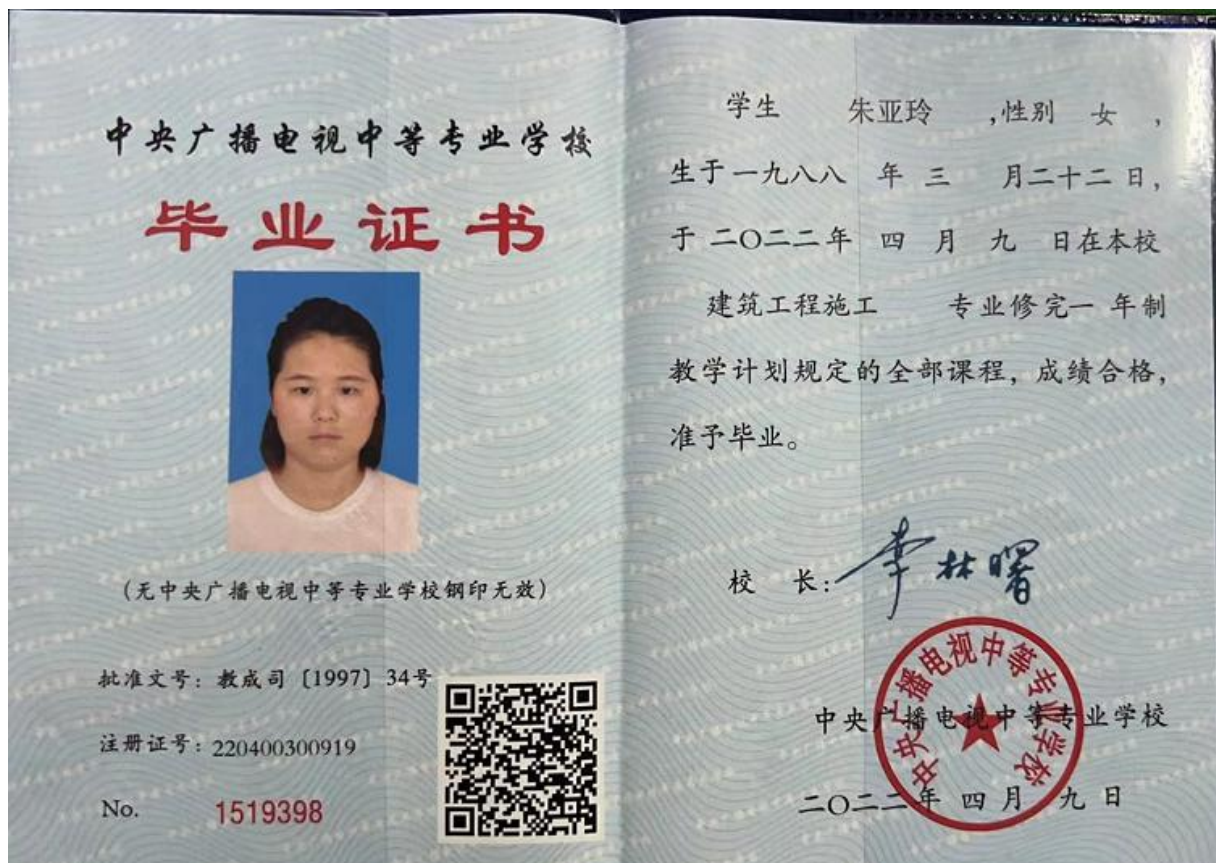 中央广播电视中等专业学校
毕业证书
(无中央广播电视中等专业学校钢印无效)
批准文号：教成司〔1997〕34号
注册证号：220400300919
No. 1519398
学生 朱亚玲 ,性别 女 ，
生于一九八八 年 三 月二十二 日，
于 二〇二二年 四 月 九 日在本校
建筑工程施工 专业修完一 年制
教学计划规定的全部课程，成绩合格，
准予毕业。
校 长：李林曙
中央广播电视中等专业学校
中央广播电视中等专业学校
二〇二二年 四 月 九 日